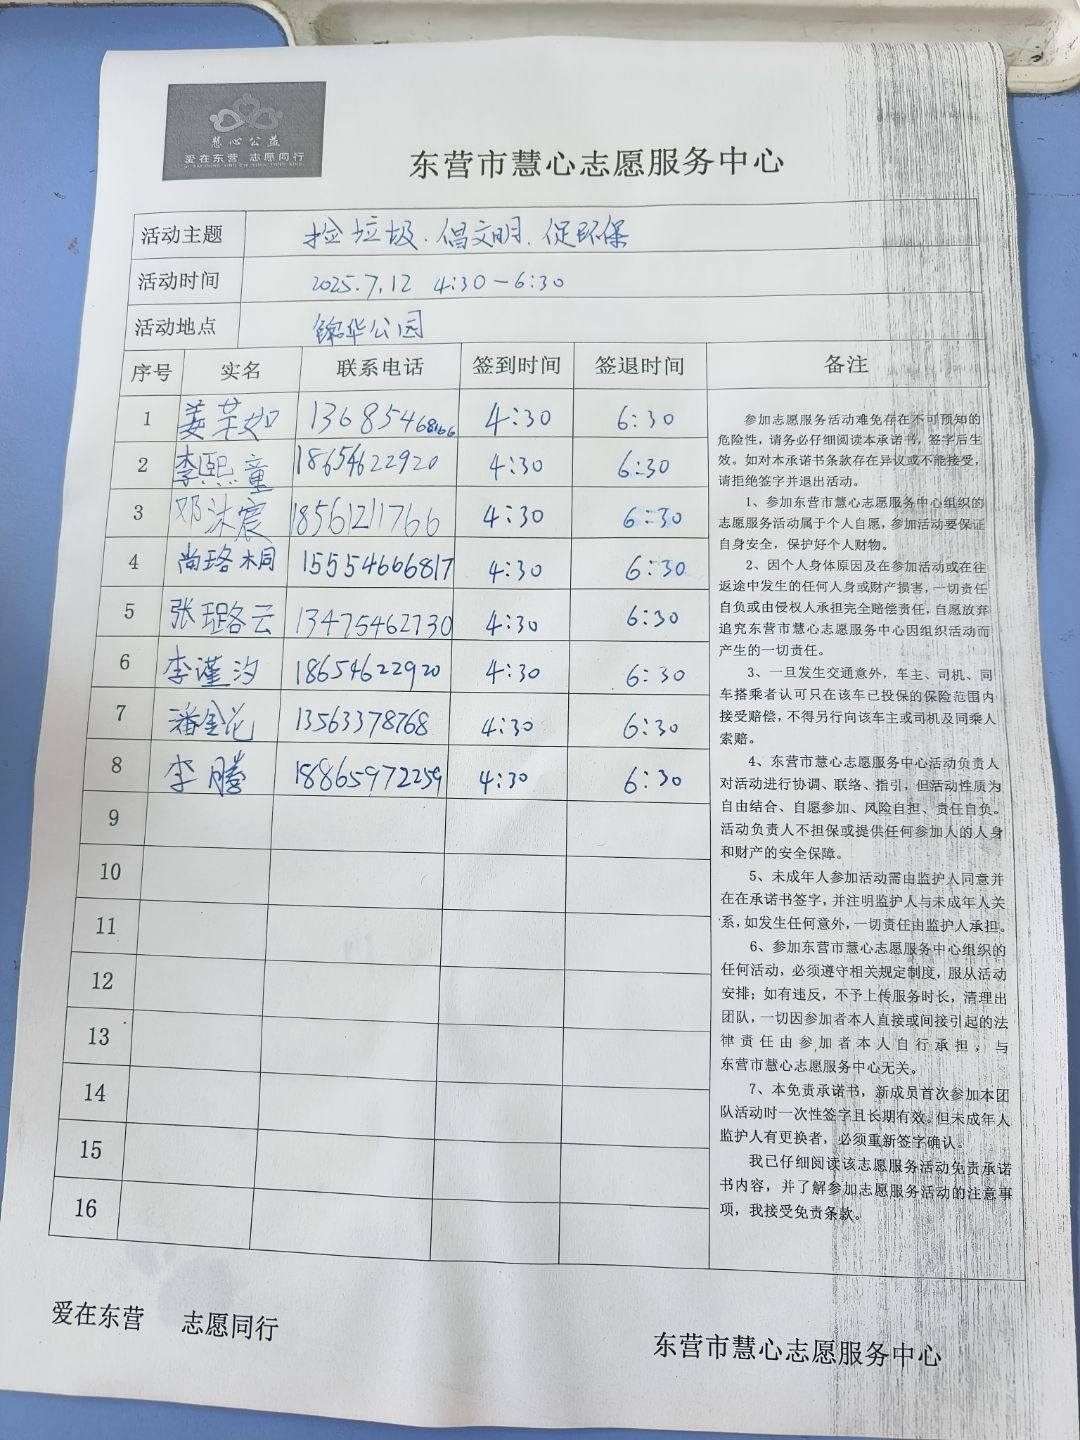 慧心公益
爱在东营 志愿同行
东营市慧心志愿服务中心
活动主题 捡垃圾.倡文明.促环保
活动时间 2025.7.12 4:30-6:30
活动地点 锦华公园
序号 实名 联系电话 签到时间 签退时间 备注
1 姜芊如 13685468166 4:30 6:30
2 李熙童 18654622920 4:30 6:30
3 邓沐宸 18561211766 4:30 6:30
4 尚珞桐 15554666817 4:30 6:30
5 张珺云 13475462730 4:30 6:30
6 李谨汐 18654622920 4:30 6:30
7 潘金花 13563378768 4:30 6:30
8 李腾 18865972259 4:30 6:30
9
10
11
12
13
14
15
16
参加志愿服务活动难免存在不可预知的
危险性，请务必仔细阅读本承诺书，签字后生
效。如对本承诺书条款存在异议或不能接受，
请拒绝签字并退出活动。
1、参加东营市慧心志愿服务中心组织的
志愿服务活动属于个人自愿，参加活动要保证
自身安全，保护好个人财物。
2、因个人身体原因及在参加活动或在往
返途中发生的任何人身或财产损害，一切责任
自负或由侵权人承担完全赔偿责任，自愿放弃
追究东营市慧心志愿服务中心因组织活动而
产生的一切责任。
3、一旦发生交通意外，车主、司机、同
车搭乘者认可只在该车已投保的保险范围内
接受赔偿，不得另行向该车主或司机及同乘人
索赔。
4、东营市慧心志愿服务中心活动负责人
对活动进行协调、联络、指引，但活动性质为
自由结合、自愿参加、风险自担、责任自负。
活动负责人不担保或提供任何参加人的人身
和财产的安全保障。
5、未成年人参加活动需由监护人同意并
在在承诺书签字，并注明监护人与未成年人关
系，如发生任何意外，一切责任由监护人承担。
6、参加东营市慧心志愿服务中心组织的
任何活动，必须遵守相关规定制度，服从活动
安排；如有违反，不予上传服务时长，清理出
团队，一切因参加者本人直接或间接引起的法
律责任由参加者本人自行承担，与
东营市慧心志愿服务中心无关。
7、本免责承诺书，新成员首次参加本团
队活动时一次性签字且长期有效。但未成年人
监护人有更换者，必须重新签字确认。
我已仔细阅读该志愿服务活动免责承诺
书内容，并了解参加志愿服务活动的注意事
项，我接受免责条款。
爱在东营 志愿同行
东营市慧心志愿服务中心